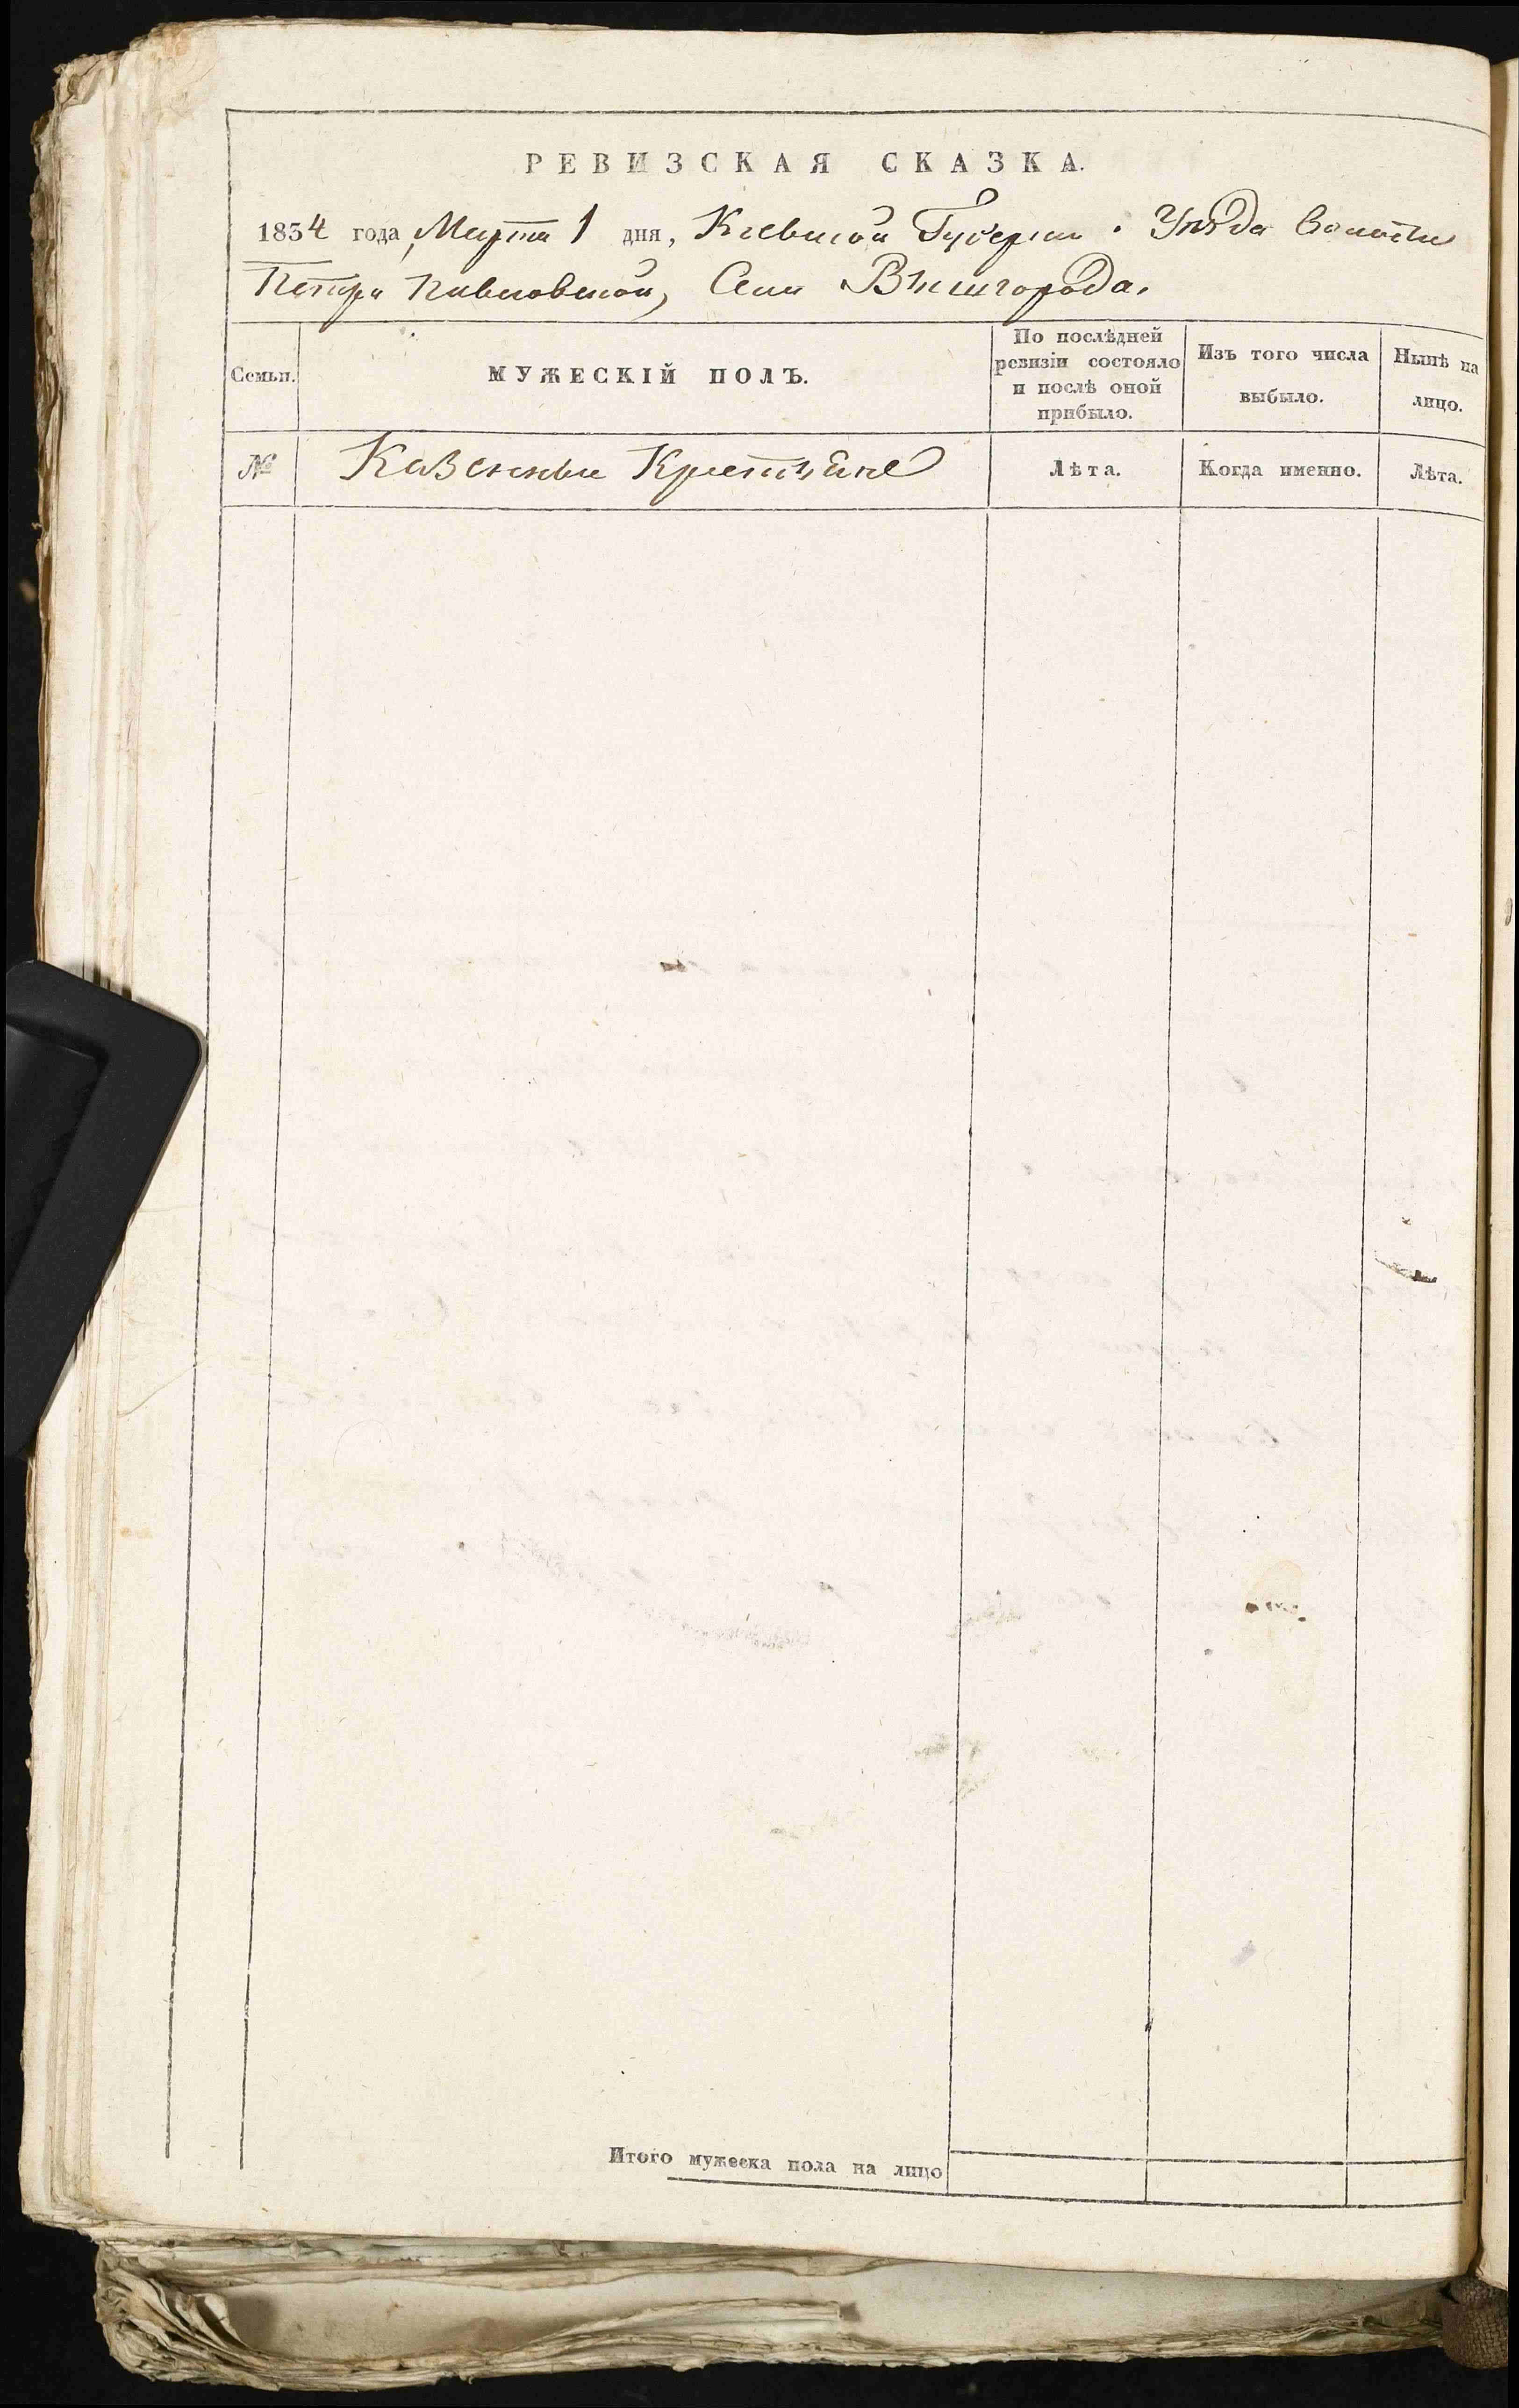 РЕВИЗСКАЯ СКАЗКА.
1834 года Марта 1 дня, Киевской Губернии . Уѣзда Волости
Петро Павловской, Села Вышгорода.
Семьи.
МУЖЕСКІЙ ПОЛЪ.
По послѣдней
ревизіи состояло
и послѣ оной
прибыло.
Изъ того числа
выбыло.
Нынѣ на
лицо.
№
Казенные Крестьяне
Лѣта.
Когда именно.
Лѣта.
Итого мужеска пола на лицо